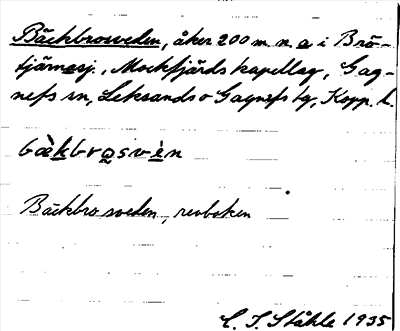 Bäckbrosveden, åker 200 m n. o i Brö-
tjärnasj., Mockfjärds kapellag, Gag-
nefs sn, Leksands o Gagnefs tg, Kopp. l.
bæ̀kbrosvèn
Bäckbro sveden, revboken
C. I. Ståhle 1935